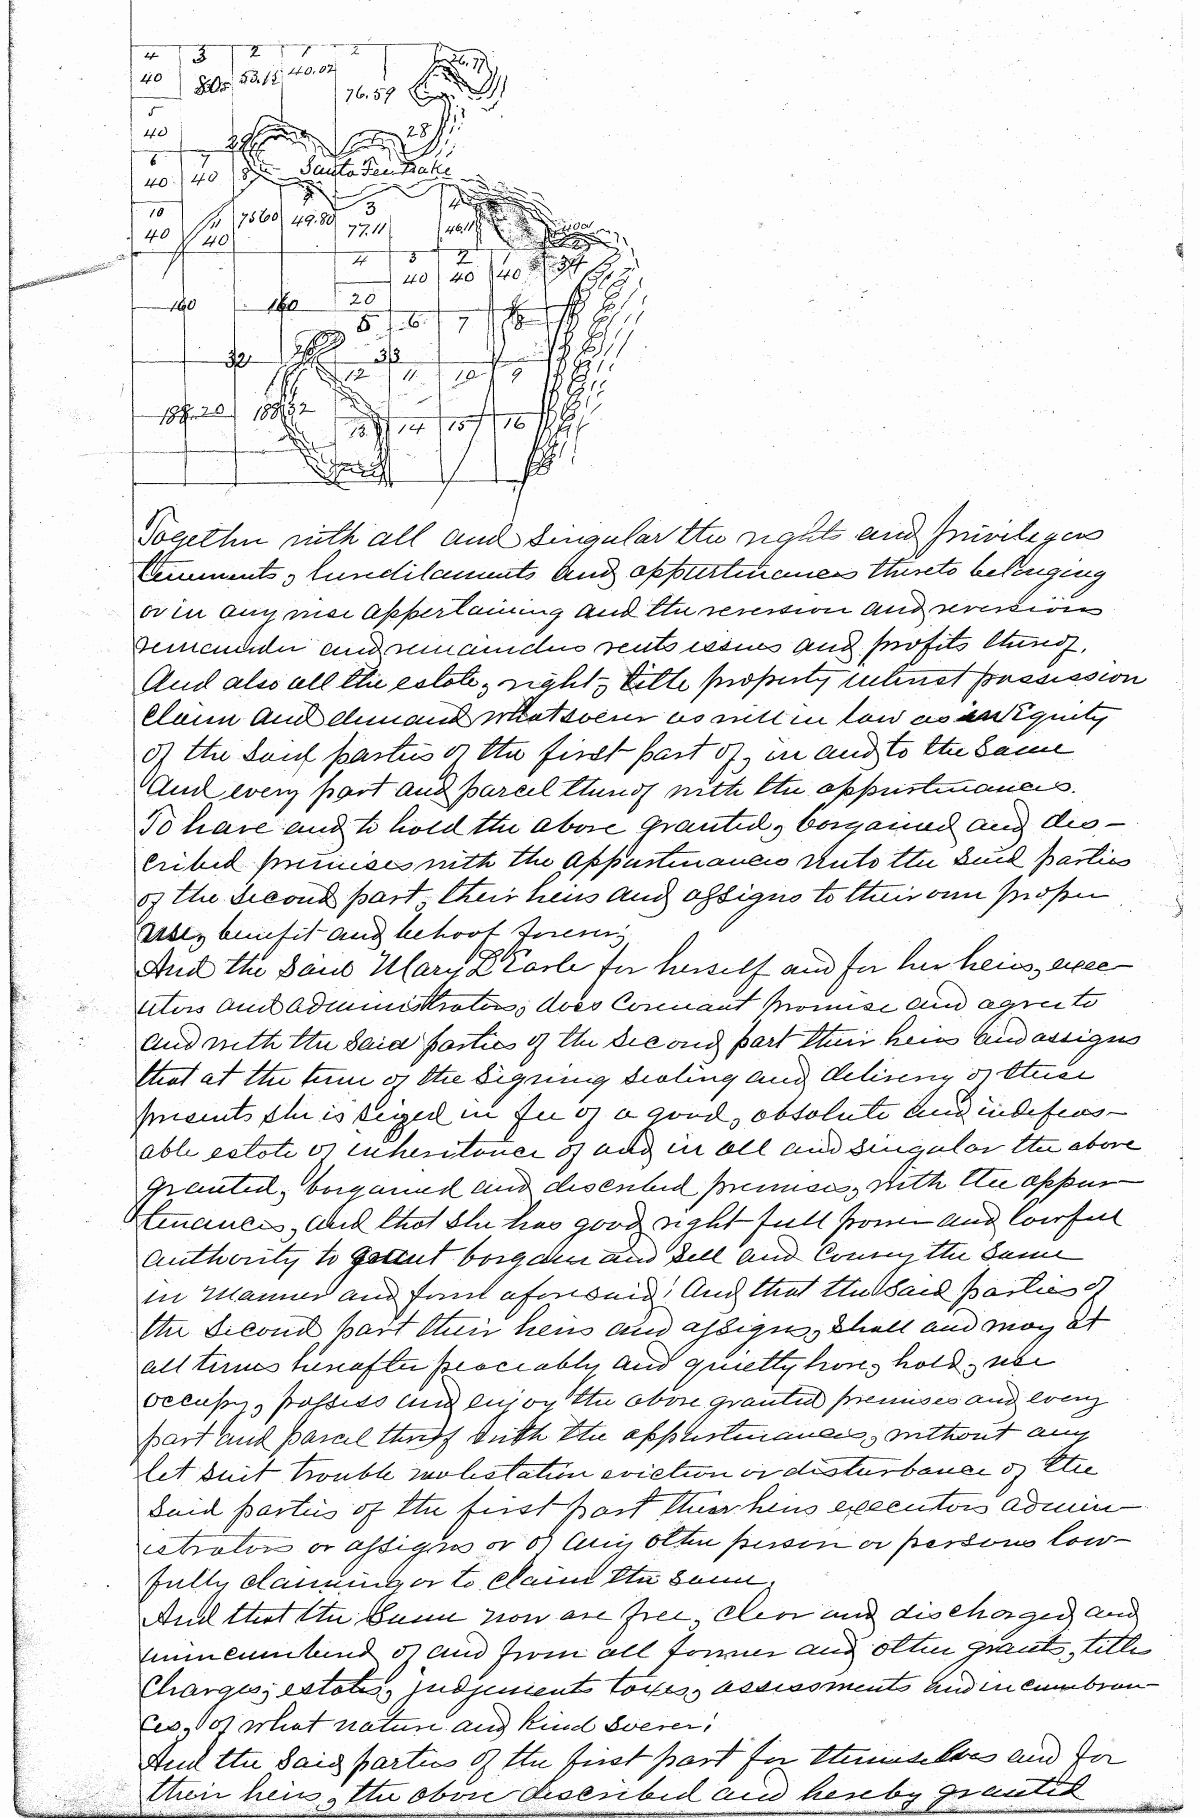 4 3 2 1 2
40 80 53.15 40.02
76.59
5
40 28
6 7
40 40 Santa Fe Lake
10
40 40 7560 49.80 3 77.11
4 3 2
40 40 40 34
160 160 20
5 6 7 8
32 33
12 11 10 9
188.20
13 14 15 16
Together with all and singular the rights and privileges
tenements, hereditaments and appurtinances thereto belonging
or in any wise appertaining and the reversion and reversions
remainder and remainders rents issues and profits thereof.
And also all the estate, right, title property interest possession
claim and demand whatsoever as well in law as in Equity
of the said parties of the first part of, in and to the same
And every part and parcel thereof with the appurtinances.
To have and to hold the above granted, bargained and des-
cribed premises with the appurtinances unto the said parties
of the second part, their heirs and assigns to their own proper
use, benifit and behoof forever;
And the said Mary D Earle for herself and for her heirs, exec-
utors and administrators, does Covenant Promise and agree to
and with the said parties of the second part their heirs and assigns
that at the time of the signing sealing and delivery of these
presents she is seized in fee of a good, absolute and indefeas-
able estate of inheritance of and in all and singular the above
granted, bargained and described premises, with the appur-
tinances, and that she has good right full power and lawful
authority to grant bargain and sell and Convey the same
in manner and form aforesaid; And that the said parties of
the second part their heirs and assigns, shall and may at
all times hereafter peaceably and quietly have, hold, use
occupy, possess and enjoy the above granted premises and every
part and parcel thereof with the appurtinances, without any
let suit trouble molestation eviction or disturbance of the
said parties of the first part their heirs executors admin-
istrators or assigns or of any other person or persons law-
fully claiming or to claim the same.
And that the same now are free, clear and discharged and
unincumbered of and from all former and other grants, titles
Charges, estates, judgements taxes, assessments and incumbran-
ces, of what nature and kind soever;
And the said parties of the first part for themselves and for
their heirs, the above described and hereby granted